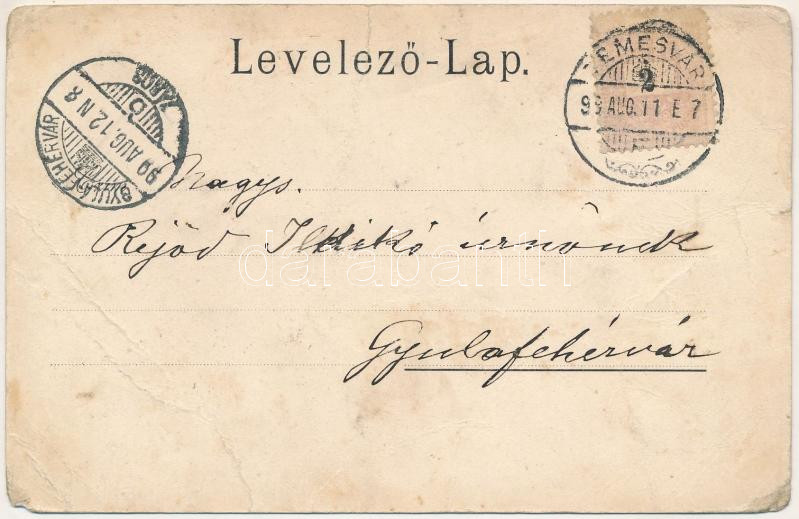 Levelező-Lap.
TEMESVÁR
2
99 AUG. 11 E 7
GYULAFEHÉRVÁR
99 AUG. 12. N 8
Nagys.
Ildikó úrnőnek
darabanth
Gyulafehérvár